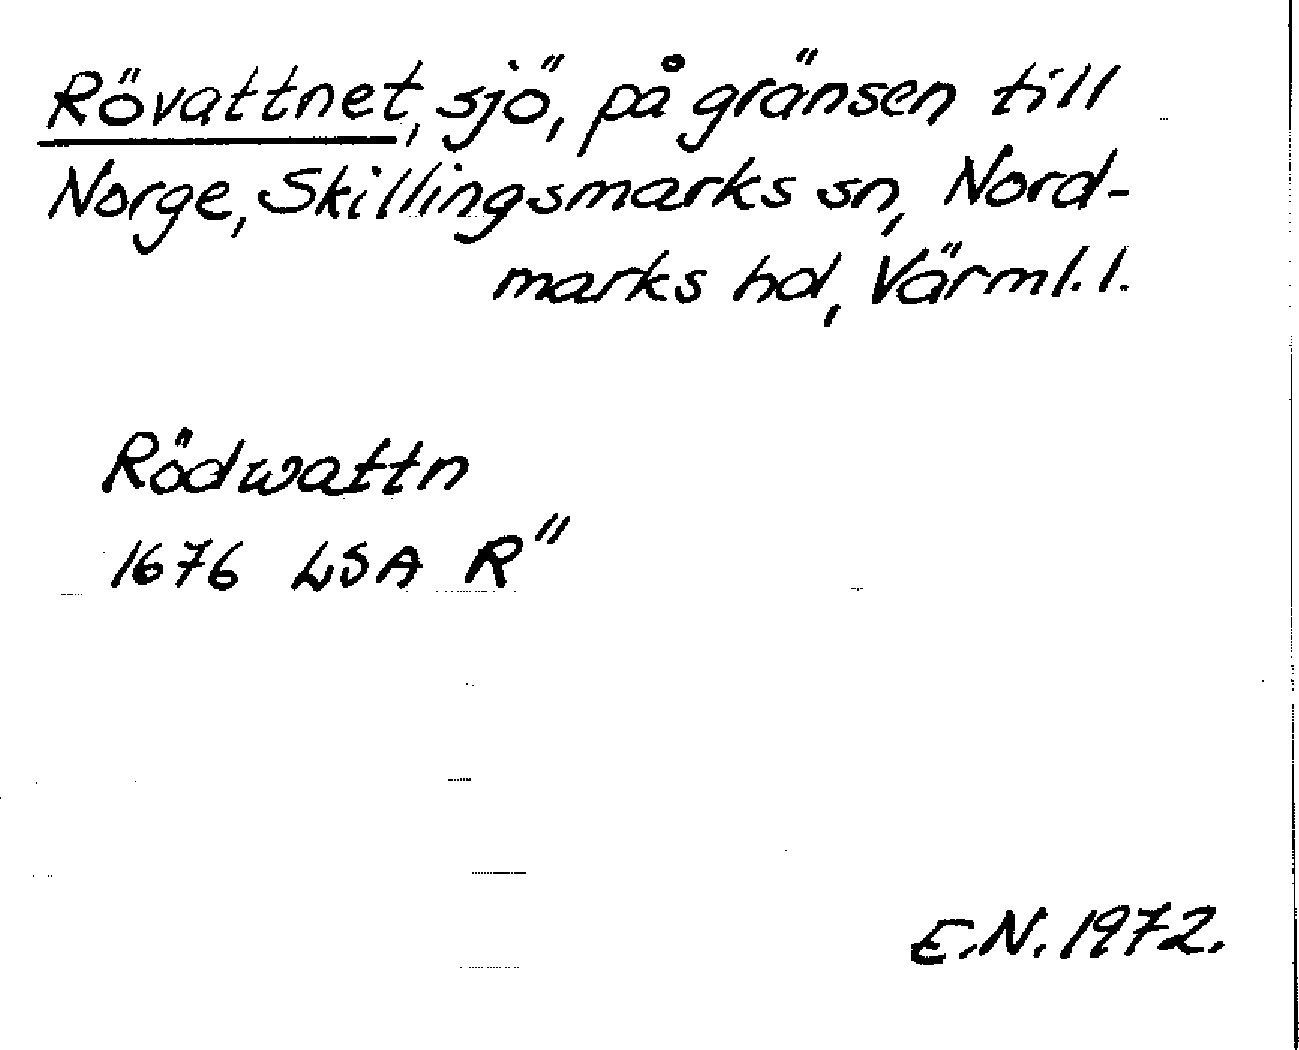 Rövattnet, sjö, på gränsen till
Norge, Skillingsmarks sn, Nord-
marks hd, Värml. l.
Rödwattn
1676 LSA R"
E.N. 1972.